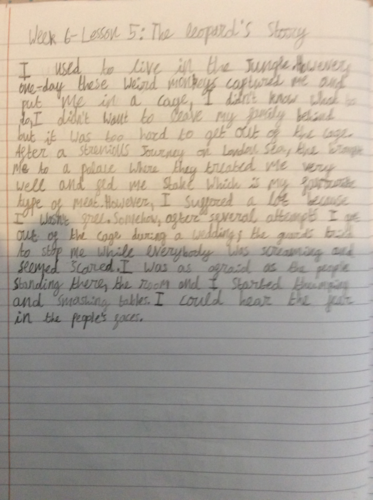 Week 6-Lesson 5: The leopard's Story
I used to live in the Jungle. However,
one-day these weird monkeys captured me and
put me in a cage, I didn't know what to
do, I didn't want to leave my family behind
but it was too hard to get out of the cage.
After a journey on Land or Sea, the brought
me to a palace where they treated me very
well and fed me stake which is my favourite
type of meat. However, I suffored a lot because
I wasnt free. Somehow, after several attempts I got
out of the cage during a wedding, the guards
to stop me while everybody was screaming and
seemed scared. I was as afraid as the people
standing there, the room and I started thumping
and smashing tables. I could hear the fear
in the people's faces.